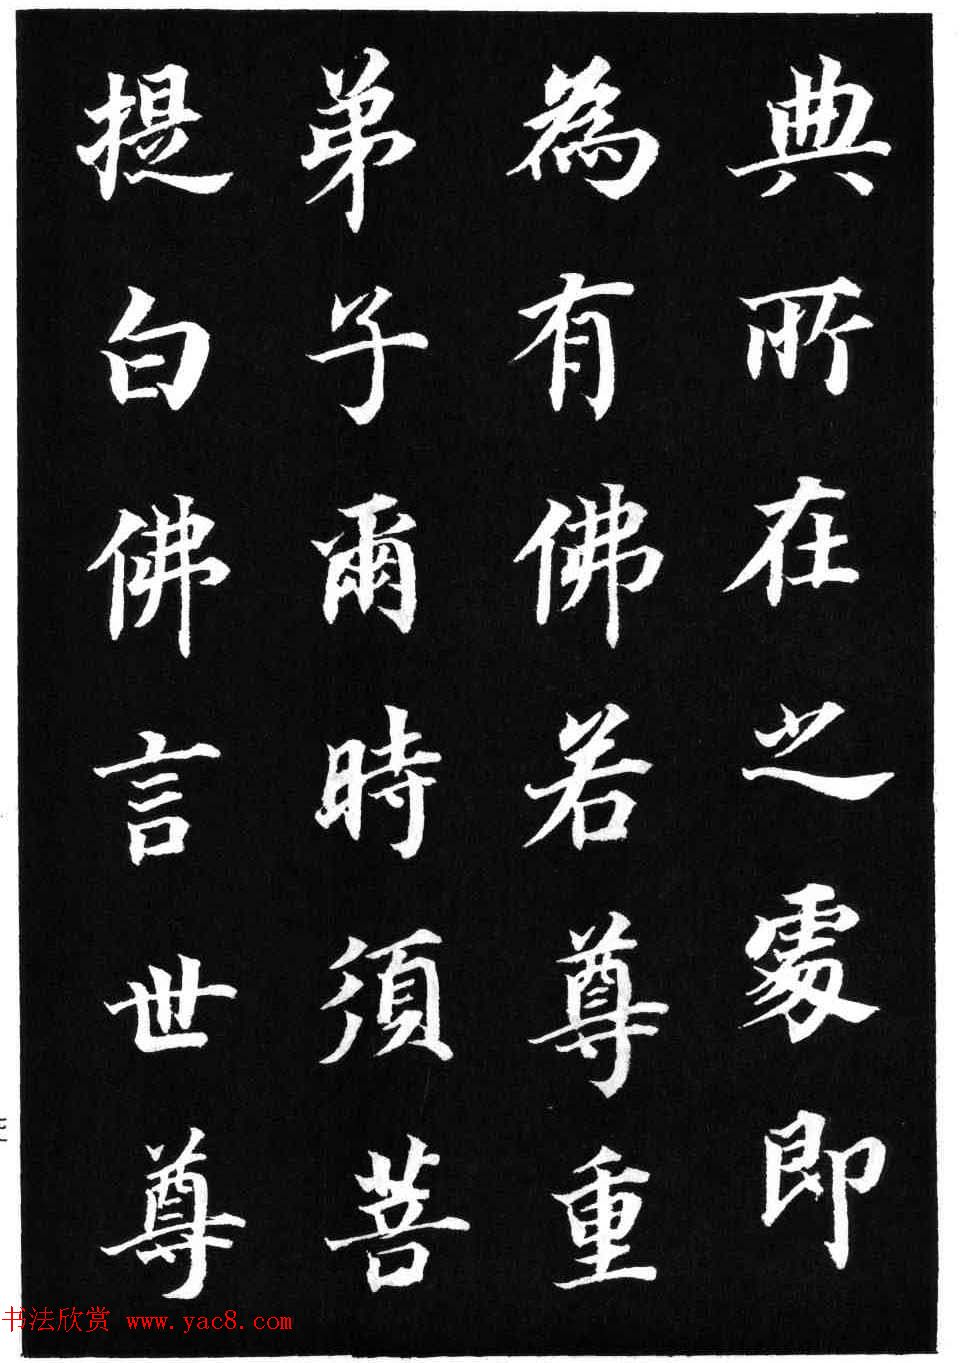 典所在之處即
為有佛若尊重
弟子爾時須菩
提白佛言世尊
书法欣赏 www.yac8.com